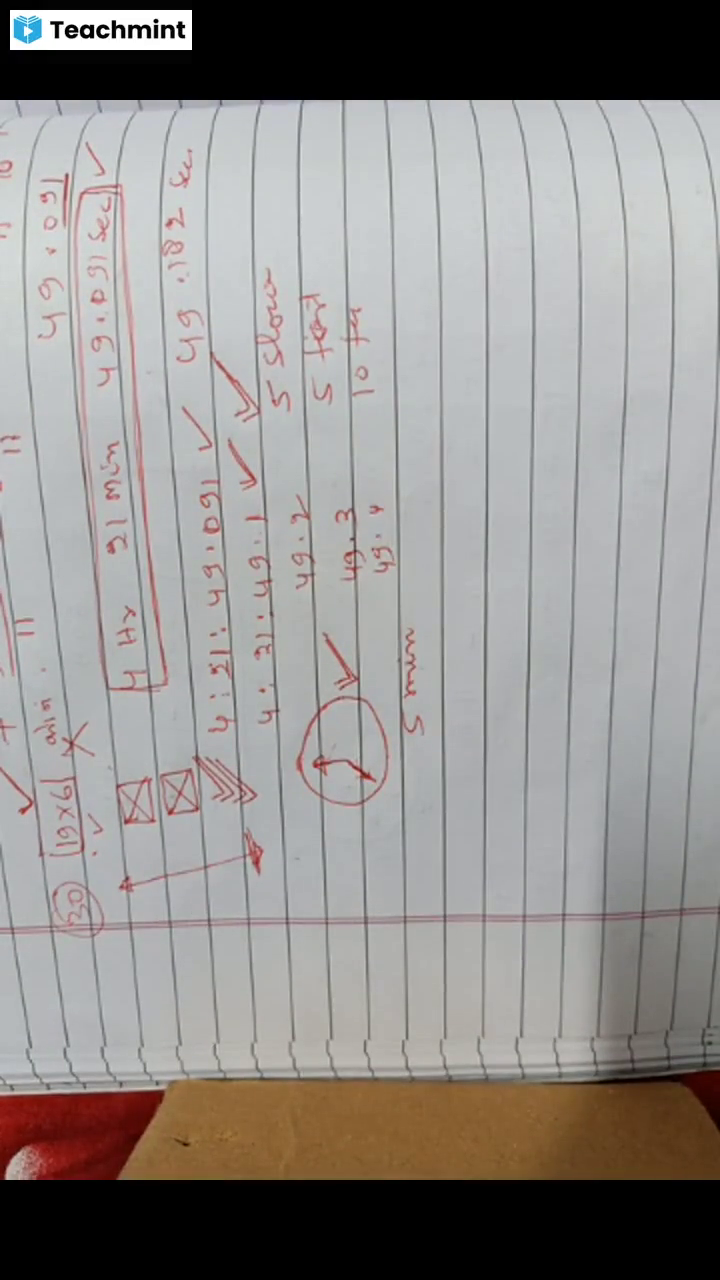 Teachmint
49.091
19x6 min.
4 Hr 21 min 49.091 sec
49.182 sec.
4:21:49.091
4:21:49.1
5 slow
49.2
5 fast
49.3
10
49.4
5 min
30